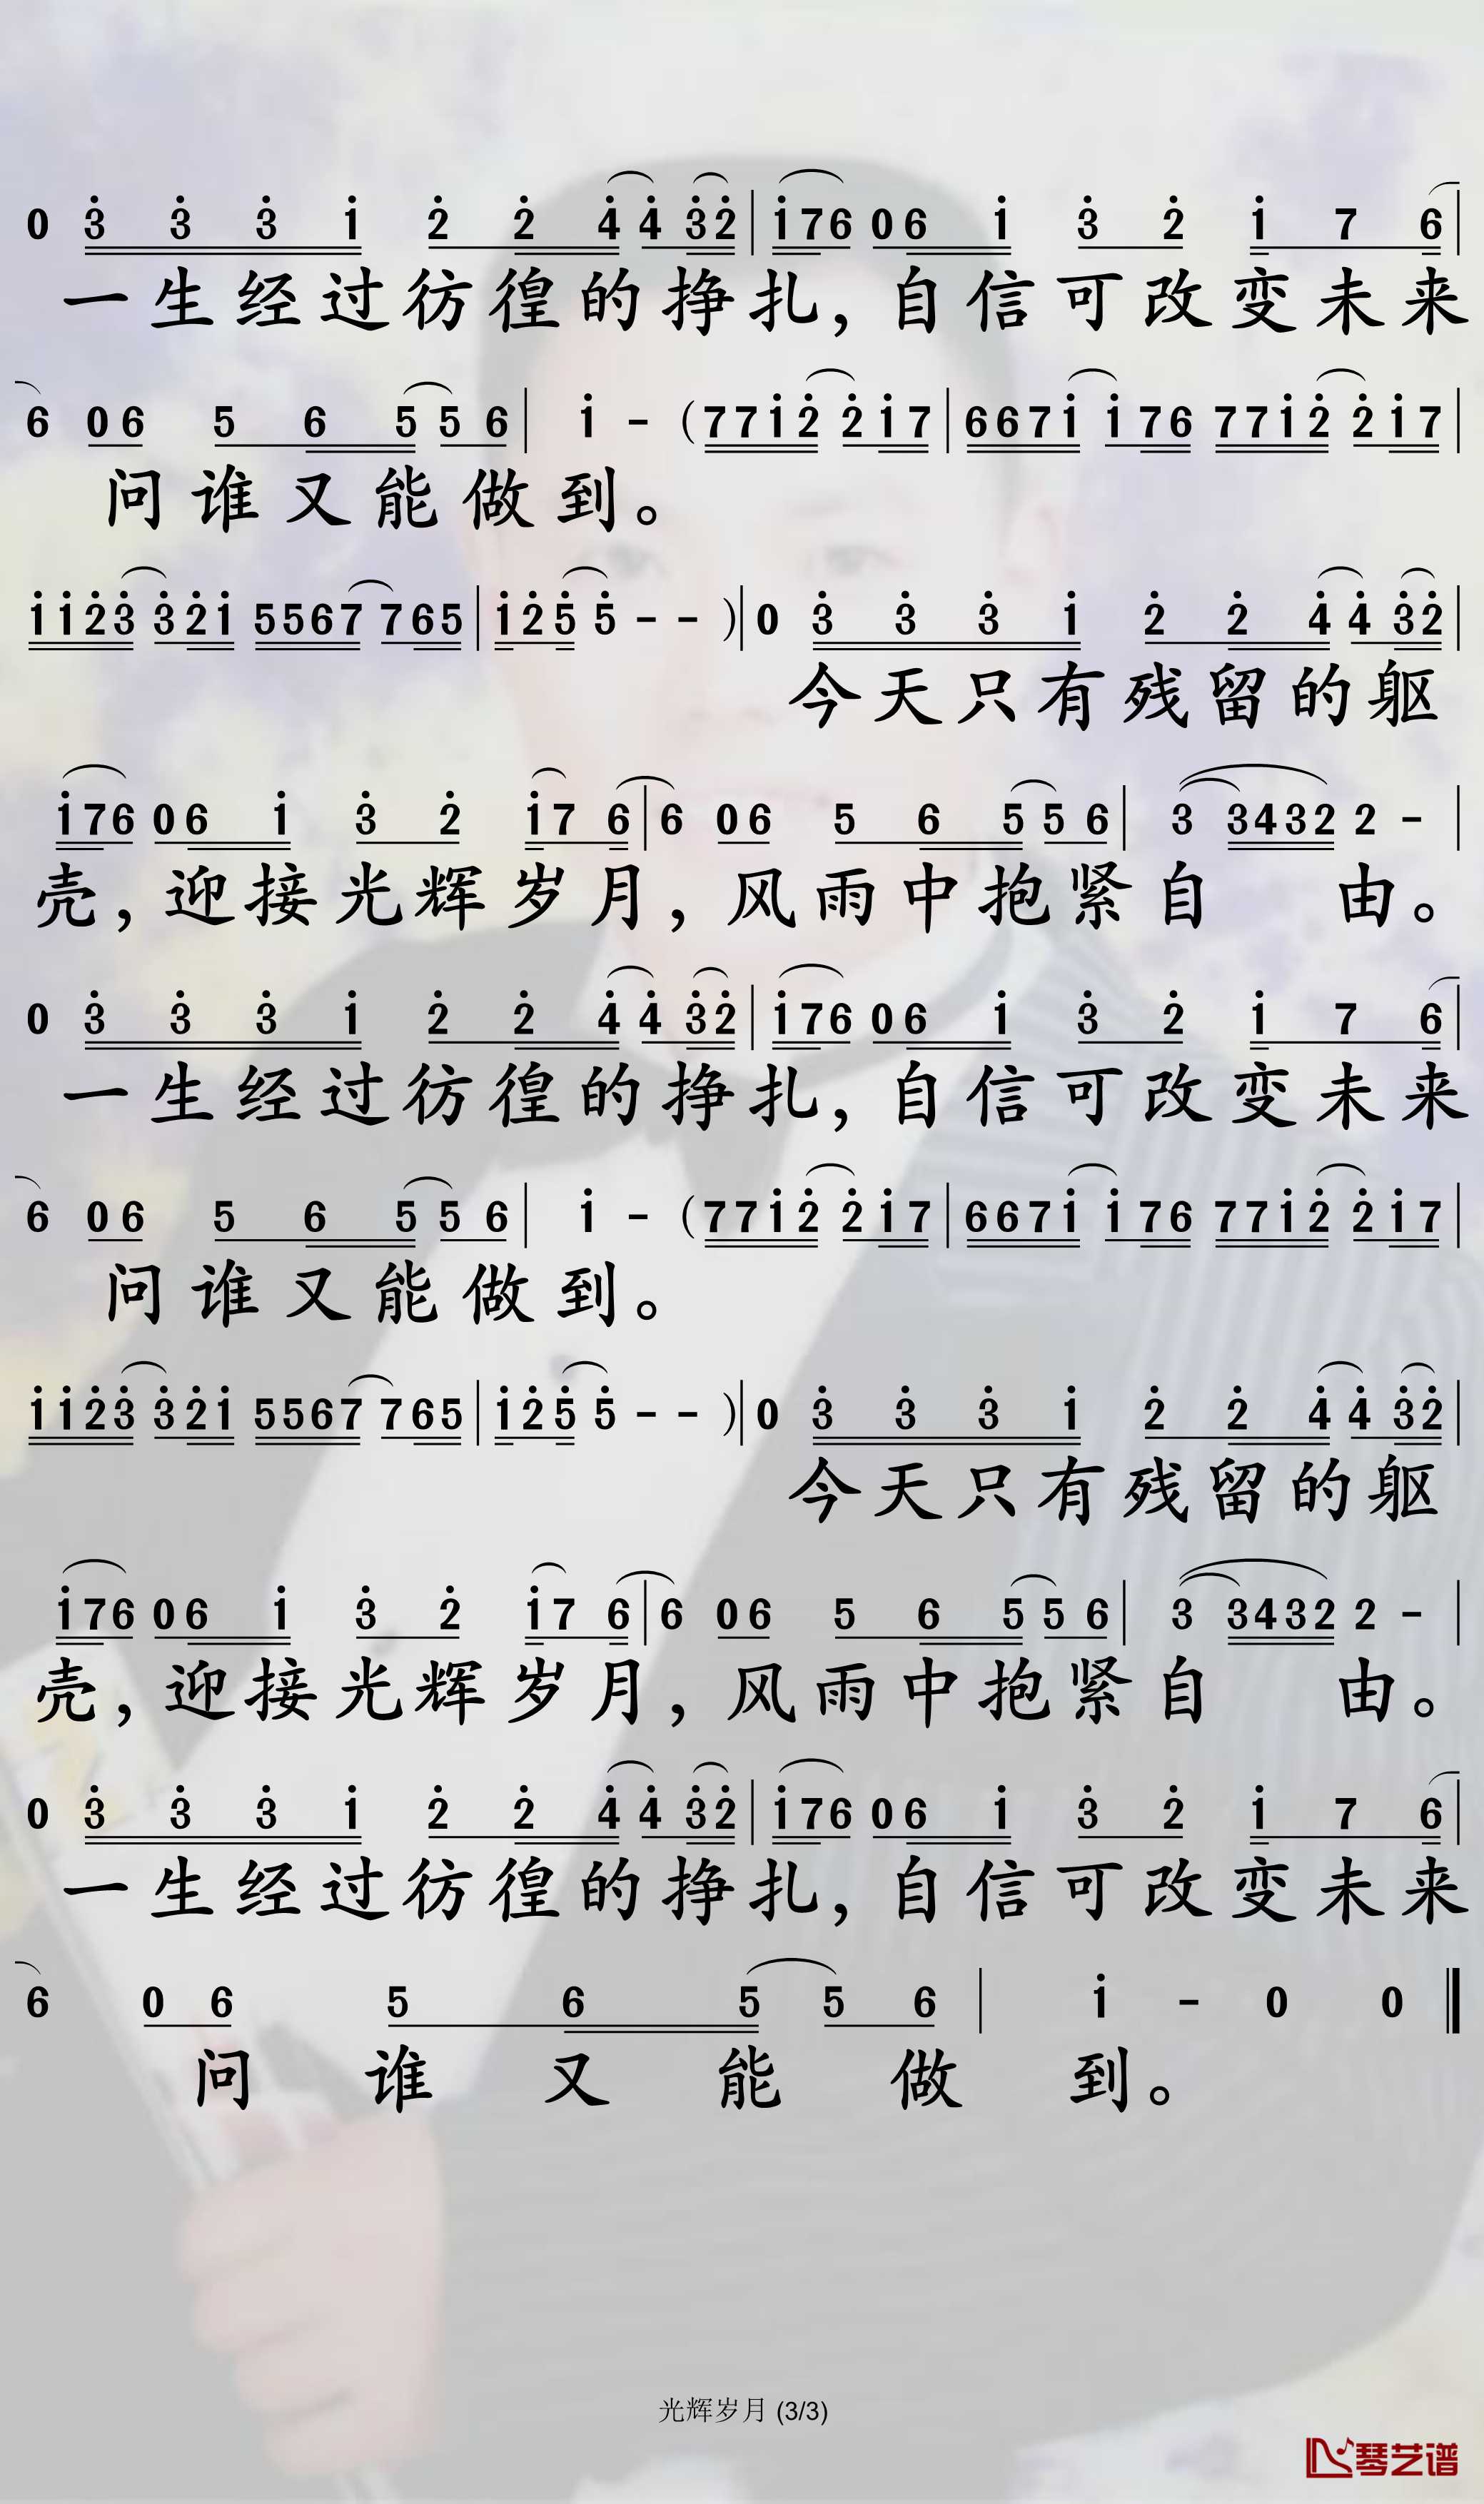 0 3 3 3 1 2 2 4 4 3 2 | 1 7 6 0 6 1 3 2 1 7 6 |
一生经过彷徨的挣扎，自信可改变未来
6 0 6 5 6 5 5 6 | 1 - ( 7 7 1 2 2 1 7 | 6 6 7 1 1 7 6 7 7 1 2 2 1 7 |
问谁又能做到。
1 1 2 3 3 2 1 5 5 6 7 7 6 5 | 1 2 5 5 - - ) | 0 3 3 3 1 2 2 4 4 3 2 |
今天只有残留的躯
1 7 6 0 6 1 3 2 1 7 6 | 6 0 6 5 6 5 5 6 | 3 3 4 3 2 2 - |
壳，迎接光辉岁月，风雨中抱紧自 由。
0 3 3 3 1 2 2 4 4 3 2 | 1 7 6 0 6 1 3 2 1 7 6 |
一生经过彷徨的挣扎，自信可改变未来
6 0 6 5 6 5 5 6 | 1 - ( 7 7 1 2 2 1 7 | 6 6 7 1 1 7 6 7 7 1 2 2 1 7 |
问谁又能做到。
1 1 2 3 3 2 1 5 5 6 7 7 6 5 | 1 2 5 5 - - ) | 0 3 3 3 1 2 2 4 4 3 2 |
今天只有残留的躯
1 7 6 0 6 1 3 2 1 7 6 | 6 0 6 5 6 5 5 6 | 3 3 4 3 2 2 - |
壳，迎接光辉岁月，风雨中抱紧自 由。
0 3 3 3 1 2 2 4 4 3 2 | 1 7 6 0 6 1 3 2 1 7 6 |
一生经过彷徨的挣扎，自信可改变未来
6 0 6 5 6 5 5 6 | 1 - 0 0 ‖
问谁又能做到。
光辉岁月 (3/3)
琴艺谱